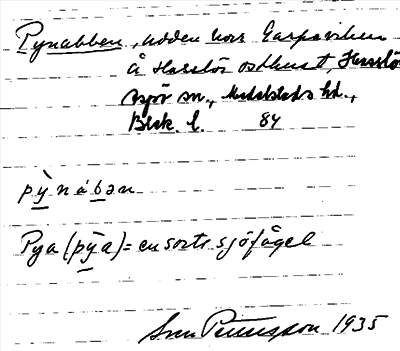 Pynabben, udden norr Garpaviken
å Hasslö ostkust, Hasslö
Aspö sn., Medelsteds hd.,
Blek. l. 84
pỳnábən
Pya (pỳa) = en sorts sjöfågel
Sven Petersson 1935